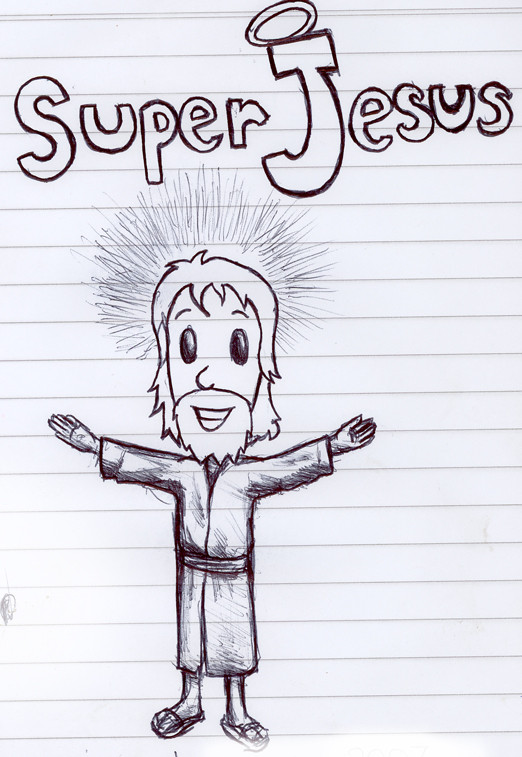 Super Jesus